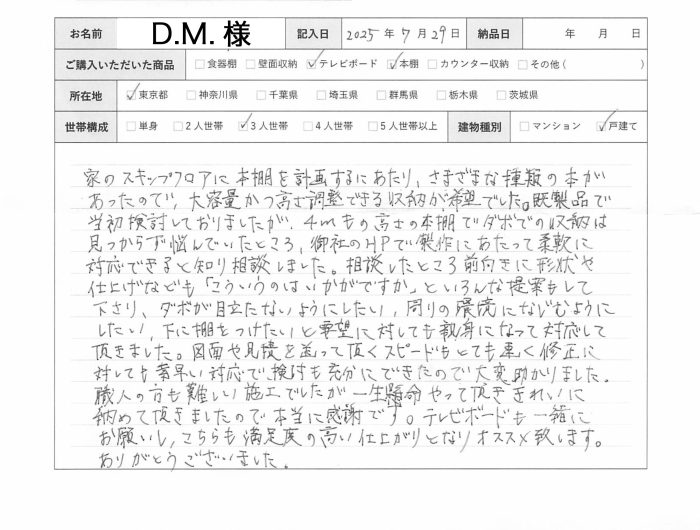 お名前 D.M. 様 記入日 2025年 7月 29日 納品日 年 月 日
ご購入いただいた商品 □食器棚 □壁面収納 ☑テレビボード ☑本棚 □カウンター収納 □その他 ( )
所在地 ☑東京都 □神奈川県 □千葉県 □埼玉県 □群馬県 □栃木県 □茨城県
世帯構成 □単身 □2人世帯 ☑3人世帯 □4人世帯 □5人世帯以上 建物種別 □マンション ☑戸建て
家のスキップフロアに本棚を計画するにあたり、さまざまな種類の本が
あったので、大容量かつ高さ調整できる収納が希望でした。既製品で
当初検討しておりましたが、4mもの高さの本棚でダボでの収納は
見つからず悩んでいたところ、御社のHPで製作にあたって柔軟に
対応できると知り相談しました。相談したところ前向きに形状や
仕上げなども「こういうのはいかがですか」といろんな提案もして
下さり、ダボが目立たないようにしたい、周りの環境になじむように
したい、下に棚をつけたいと要望に対しても親身になって対応して
頂きました。図面や見積を送って頂くスピードもとても速く修正に
対しても素早い対応で、検討も充分にできたので大変助かりました。
職人の方も難しい施工でしたが一生懸命やって頂ききれいに
納めて頂きましたので本当に感謝です。テレビボードも一緒に
お願いし、こちらも満足度の高い仕上がりとなりオススメ致します。
ありがとうございました。